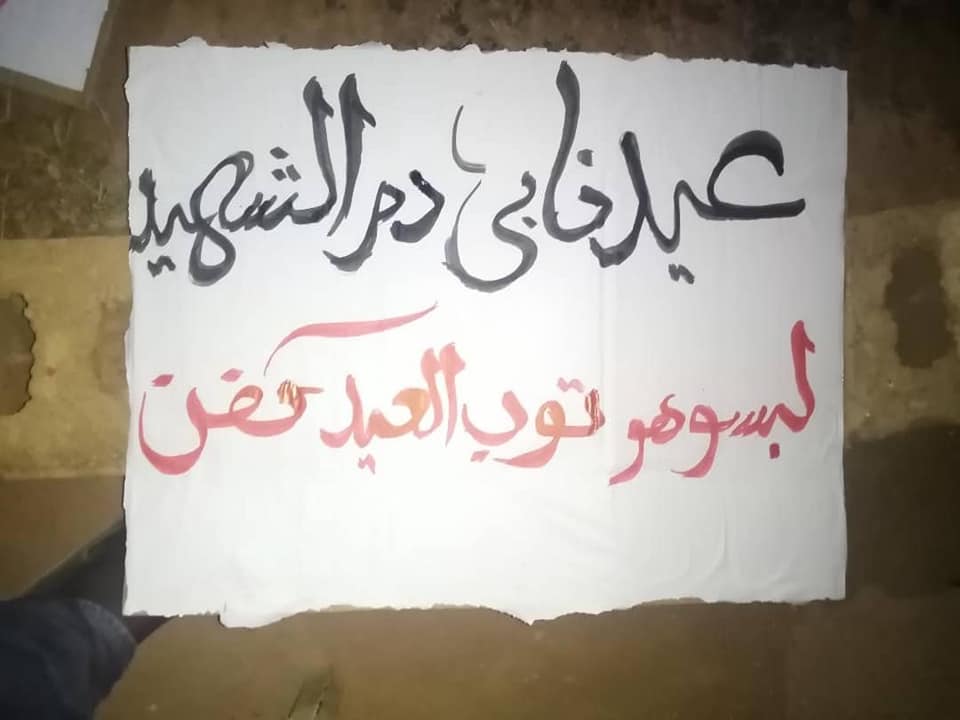 عيد خابي دم الشهيد
لبسوهو توب العيد كفن